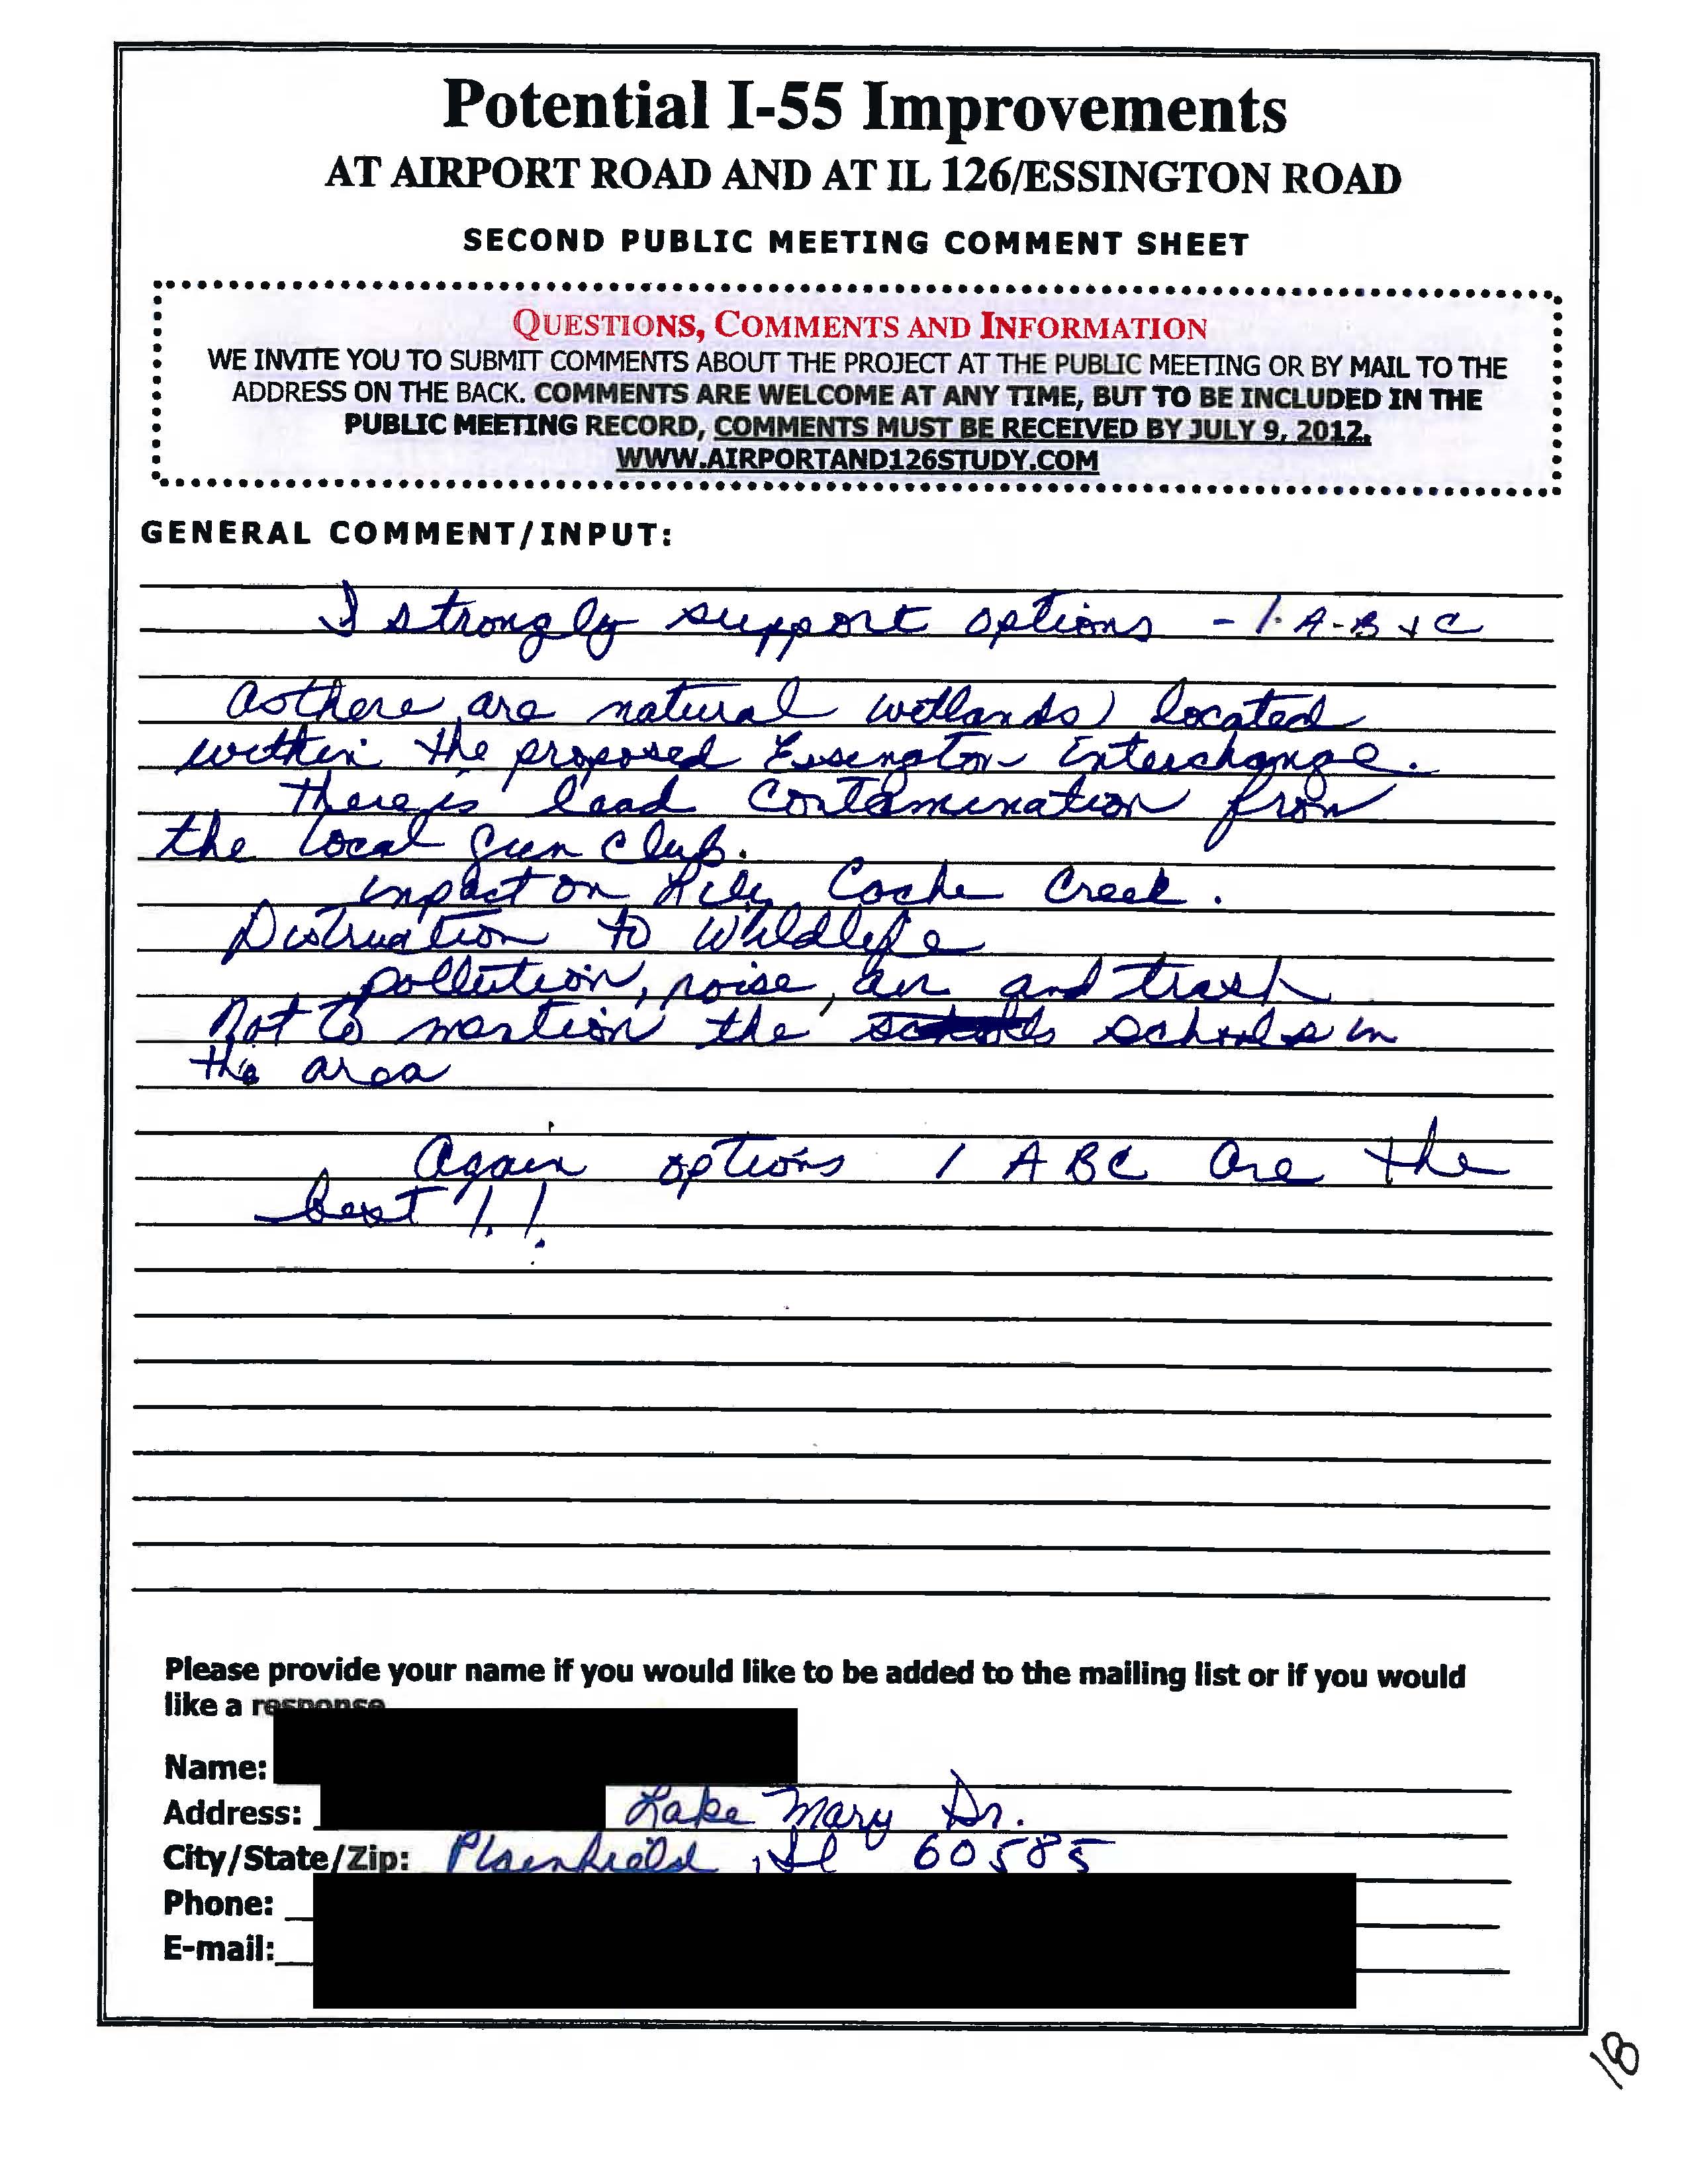 Potential I-55 Improvements
AT AIRPORT ROAD AND AT IL 126/ESSINGTON ROAD
SECOND PUBLIC MEETING COMMENT SHEET
QUESTIONS, COMMENTS AND INFORMATION
WE INVITE YOU TO SUBMIT COMMENTS ABOUT THE PROJECT AT THE PUBLIC MEETING OR BY MAIL TO THE
ADDRESS ON THE BACK. COMMENTS ARE WELCOME AT ANY TIME, BUT TO BE INCLUDED IN THE
PUBLIC MEETING RECORD, COMMENTS MUST BE RECEIVED BY JULY 9, 2012.
WWW.AIRPORTAND126STUDY.COM
GENERAL COMMENT/INPUT:
I strongly support options - 1. A-B + C
As there are natural wetlands located
within the proposed Essington Interchange.
There is lead contamination from
the local gun club.
impact on Lily Cache Creek.
Distruction to Whildlife
pollution, noise, air and trash
Not to mention the schools in
the area
Again options 1 A B C are the
best !!
Please provide your name if you would like to be added to the mailing list or if you would
like a response
Name:
Address: Lake Mary Dr.
City/State/Zip: Plainfield, Il 60585
Phone:
E-mail:
18